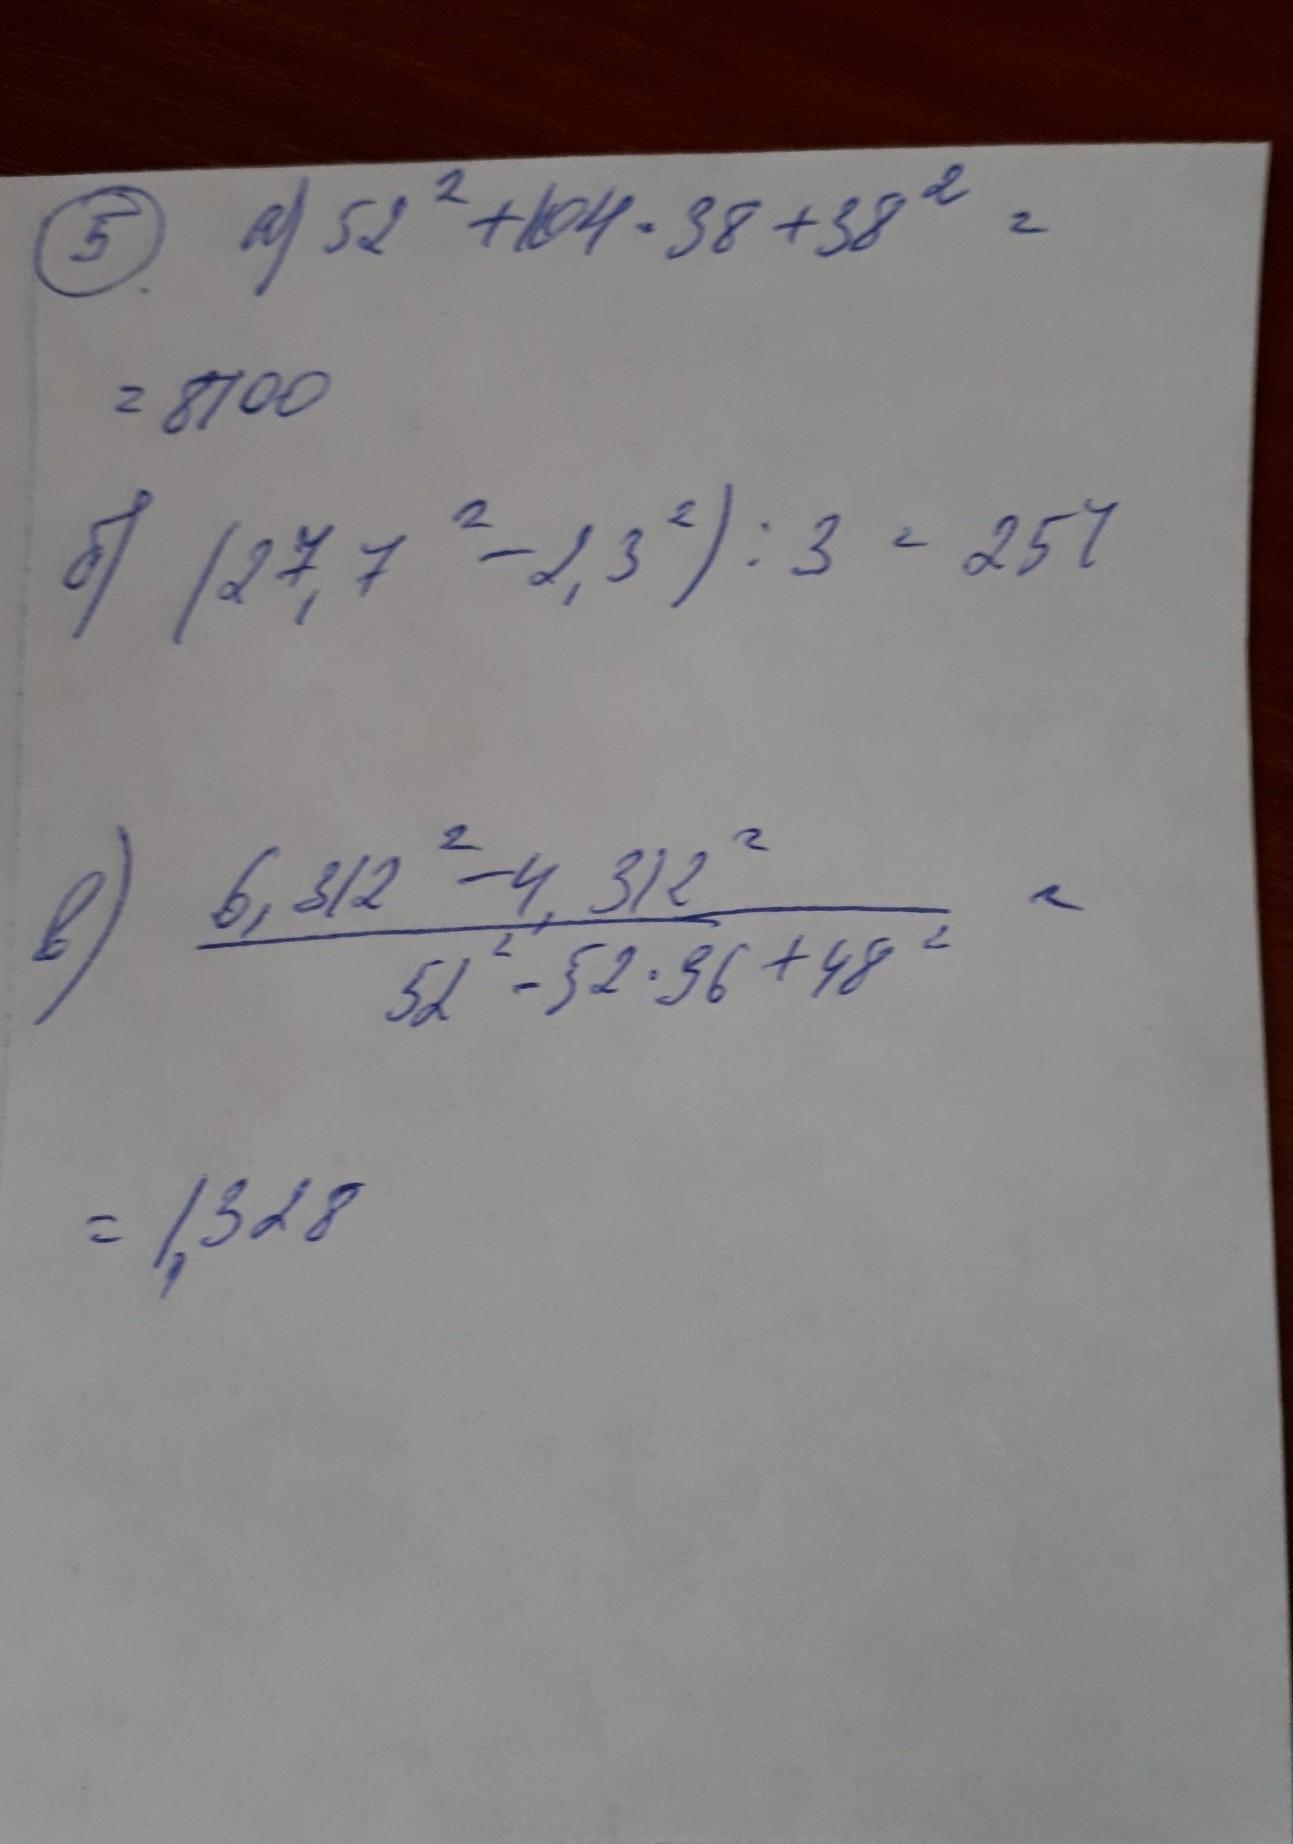 5. а) 52² + 104 · 38 + 38² =
= 8100
б) (27,7² - 2,3²) : 3 = 254
в) 6,312² - 4,312² =
52² - 52 · 96 + 48²
= 1,328